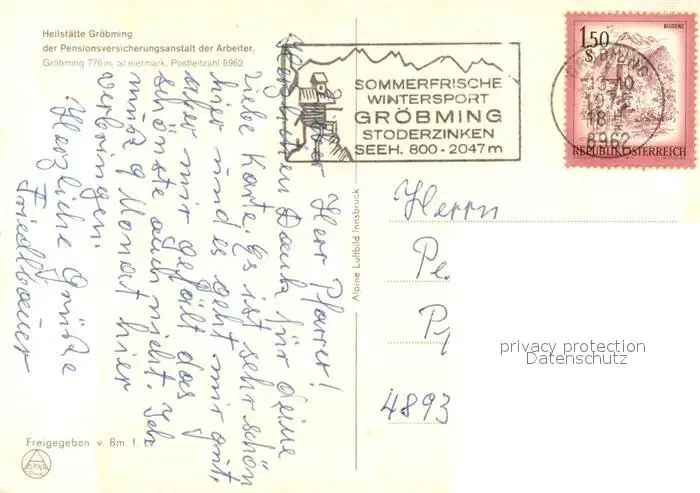 Heilstätte Gröbming
der Pensionsversicherungsanstalt der Arbeiter,
Gröbming 776m, Steiermark, Postleitzahl 8962
Lieber Herr Pfarrer!
Herzlichen Dank für deine
liebe Karte. Es ist sehr schön
hier und es geht mir gut,
aber mir gefällt das
schönste auch nicht. Ich
muß 9 Monat hier
verbringen.
Herzliche Grüße
Friedlbauer
Freigegeben v. Bm. f. LV.
ALPINE
Alpine Luftbild Innsbruck
SOMMERFRISCHE
WINTERSPORT
GRÖBMING
STODERZINKEN
SEEH. 800-2047m
8962
1.50
S
BLUDENZ
REPUBLIK ÖSTERREICH
Herrn
Pe
Pf
4893
privacy protection
Datenschutz